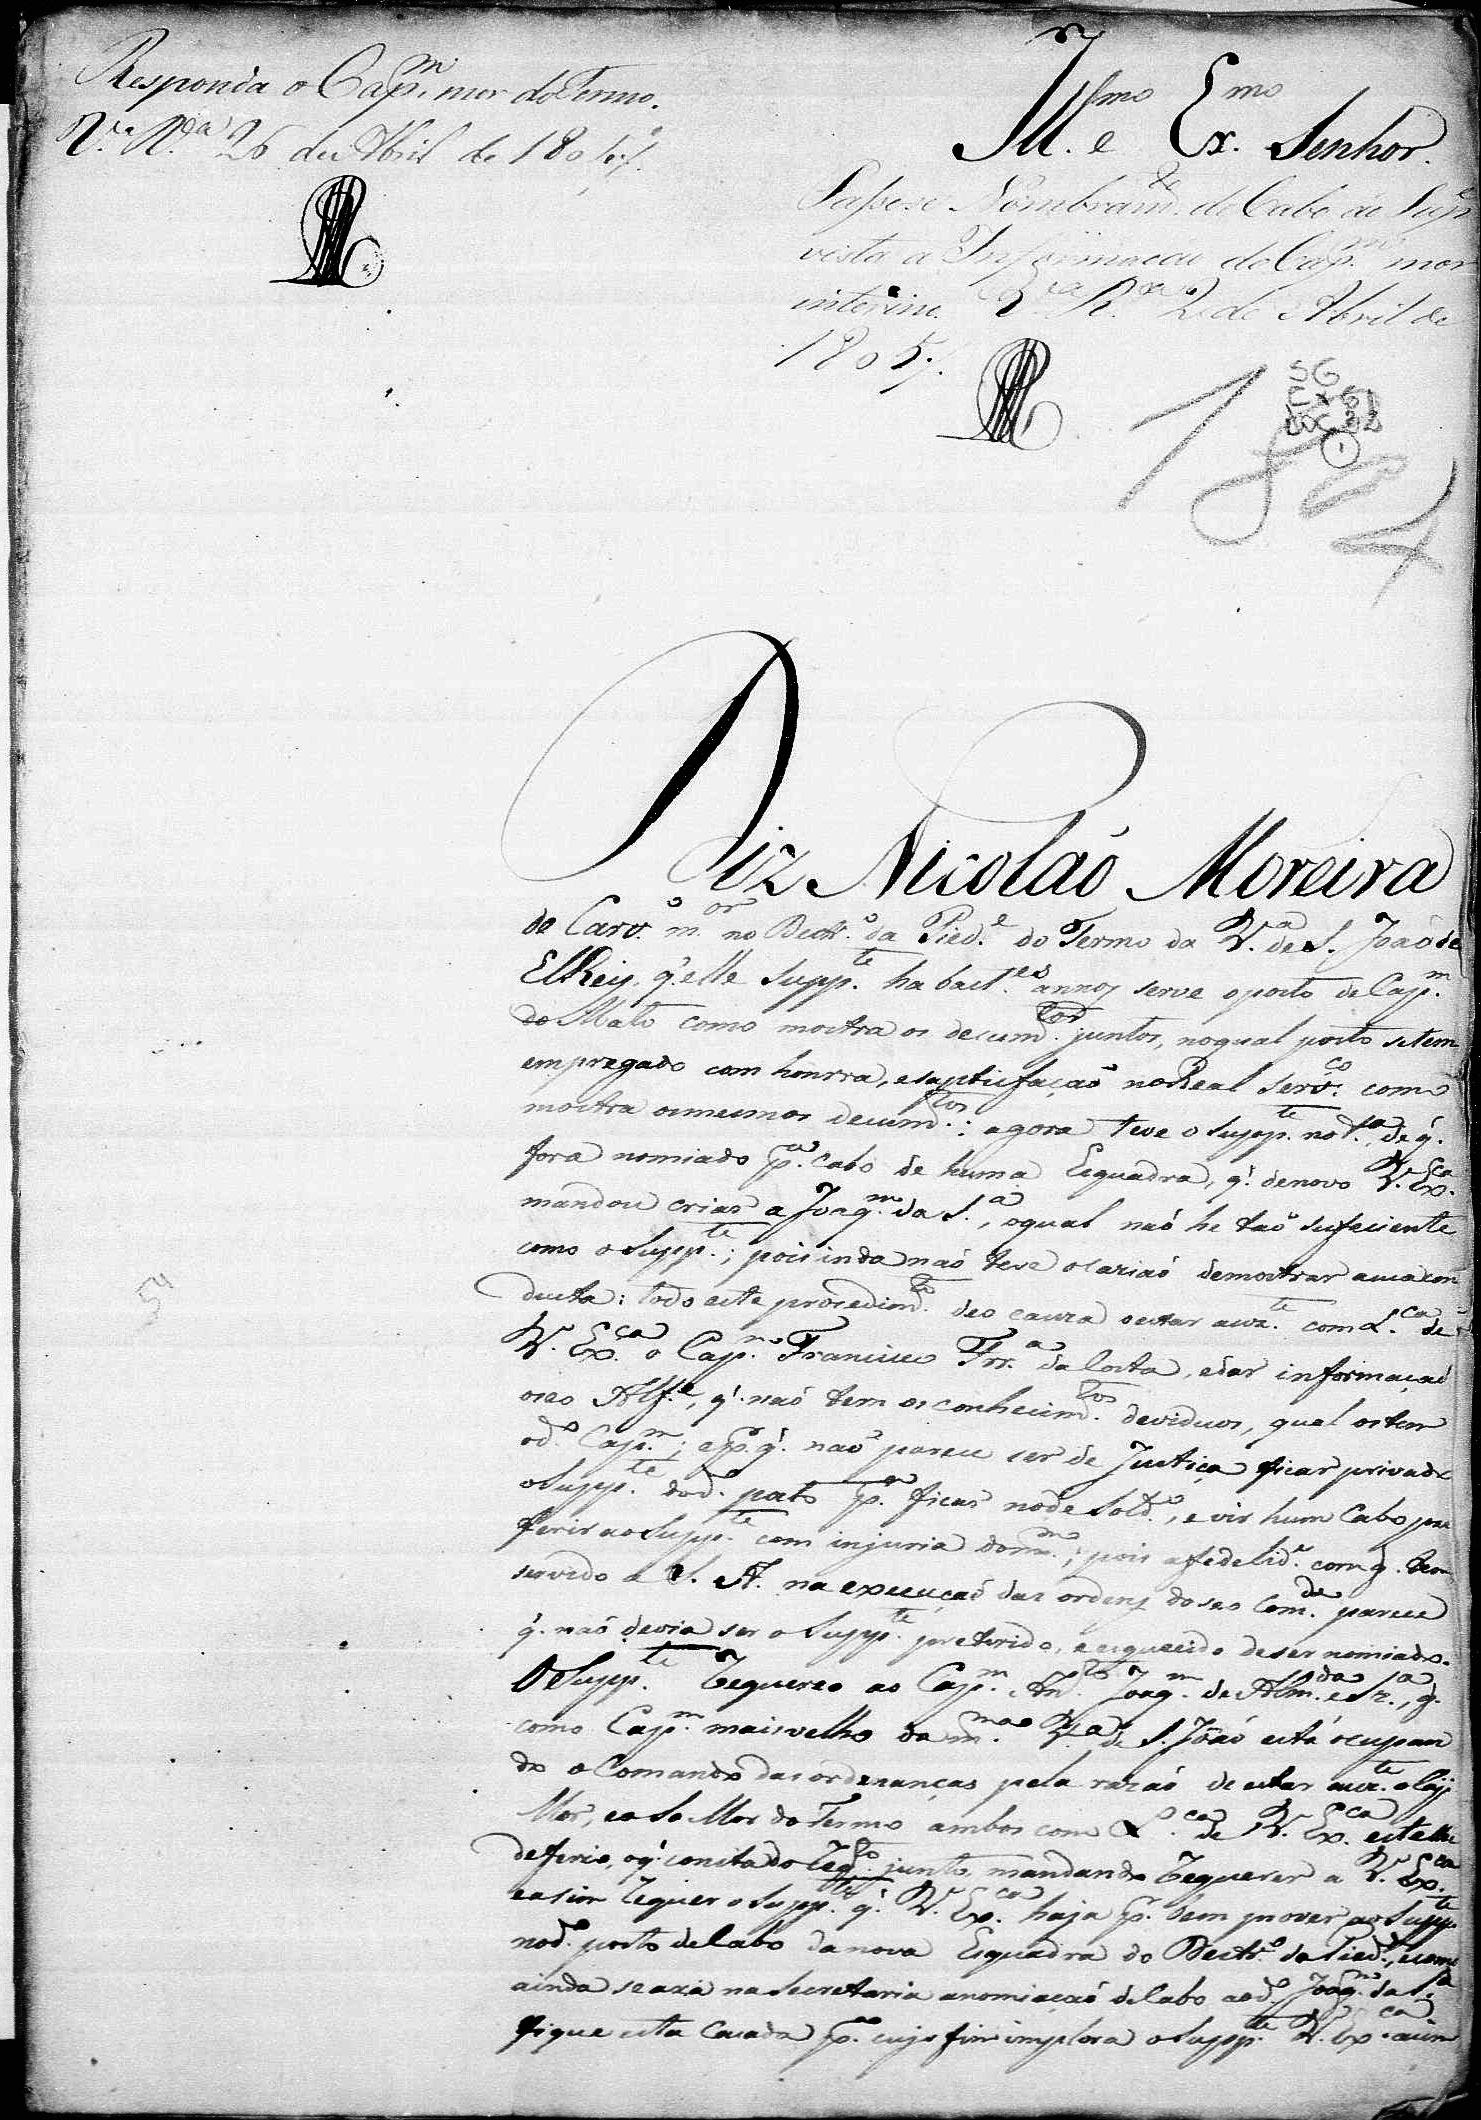 Responda o Cap.m mor do Termo.
V.a R.ca 26 de Abril de 1804
Ill.mo e Ex.mo Senhor.
Passese Nombram.to de Cabo ao Supp.e
vista a Informacaõ do Cap.m mor
interino. V.a R.ca 2 de Abril de
1805.
SG
CX 61
DOC 32
1
1804
Diz Nicoláo Moreira
de Carv.o m.or no Destr.o da Pied.e do Termo da V.a de S. Joaõ de
ElRey, q.' elle Supp.te ha bast.es annos serve o posto de Cap.m
do Mato como mostra os decum.tos juntos, noqual posto setem
empregado com honrra, esaptisfaçaõ no Real Serv.co como
mostra osmesmos decum.tos: agora teve o Supp.te not.a, de q.'
fora nomiado p.a cabo de huma Esquadra, q.' denovo V. Ex.ca
mandou criar a Joaq.m da S.a, oqual naõ he taõ suficiente
como o Supp.te; pois inda naõ teve ocaziaõ demostrar asuacon
ducta: todo este prosedim.to deo cauza oestar auz.te com L.ca de
V. Ex.ca o Cap.m Francisco Frr.a da Costa, edar informaçaõ
oseo Alf.e, q.' naõ tem os conhecim.tos deviduos, qual ostem
od.o Cap.m; e p.r q.' naõ parece ser de Justiça ficar privado
o Supp.te dod.o posto p.a ficar node Sold.o, e vir hum Cabo pre
ferir ao Supp.te com injuria dom.mo; pois afedelid.e com q.' tem
servido a S. A. na execuçaõ das ordens doseo Com.de parece
q.' naõ devia ser o Supp.te preterido, e esquecido deser nomiado.
O Supp.te requereo ao Cap.m An.to Joaq.m de Alm.da e Sz.a, q.'
como Cap.m maisvelho da m.ma V.a de S. Joaõ está ocupan
do o Comando das ordenanças pela razaõ de estar auz.te o Cap.m
Mor, eo Sr. Mor do Termo ambos com L.ca de V. Ex.ca este lhe
deferio, oq.' consta do req.to junto, mandando requerer a V. Ex.ca
easim requer o Supp.te q.' V. Ex.ca haja p.r bem prover ao Supp.te
nod.o posto deCabo danova Esquadra do Destr.o da Pied.e, ecomo
ainda seaxa na Secretaria anomiaçaõ deCabo aod.o Joaq.m da S.a
fique esta Casada p.a cujo fim implora o Supp.te V. Ex.ca asim